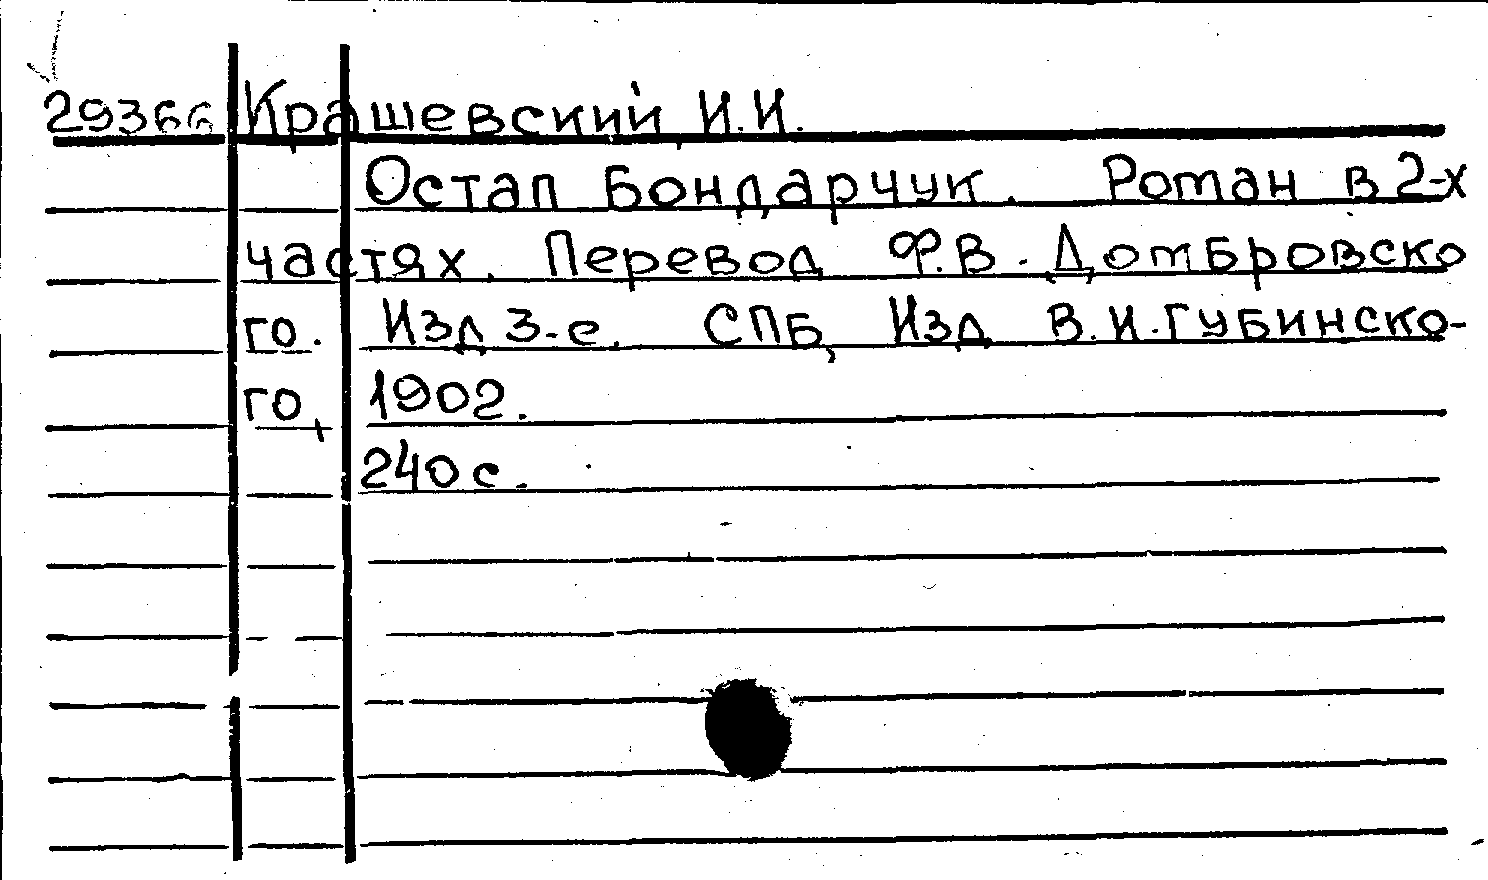 29366 Крашевский И.И.
Остап Бондарчук. Роман в 2-х
частях. Перевод Ф.В. Домбровско
го. Изд 3-е. СПБ, Изд В.И.Губинско-
го, 1902.
240 с.